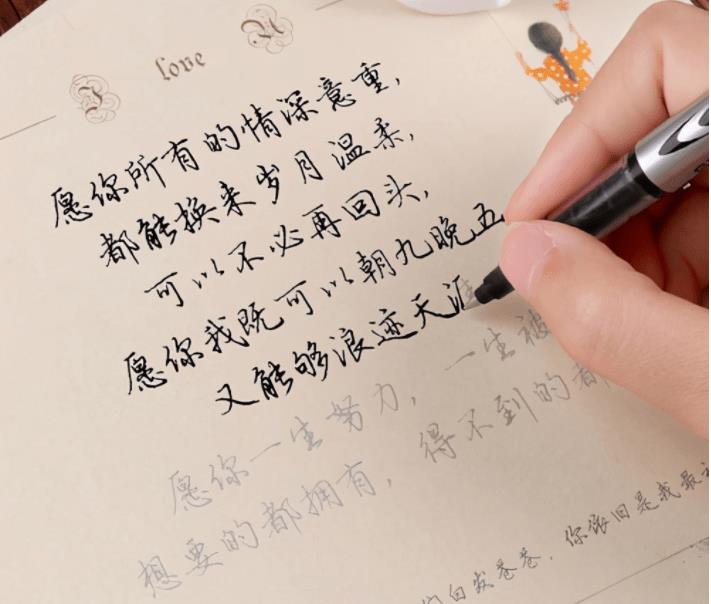 love
愿你所有的情深意重,
都能换来岁月温柔,
可以不必再回头,
愿你我既可以朝九晚五
又能够浪迹天涯
愿你一生努力,一生被
想要的都拥有,得不到的都
白发苍苍,你依旧是我最